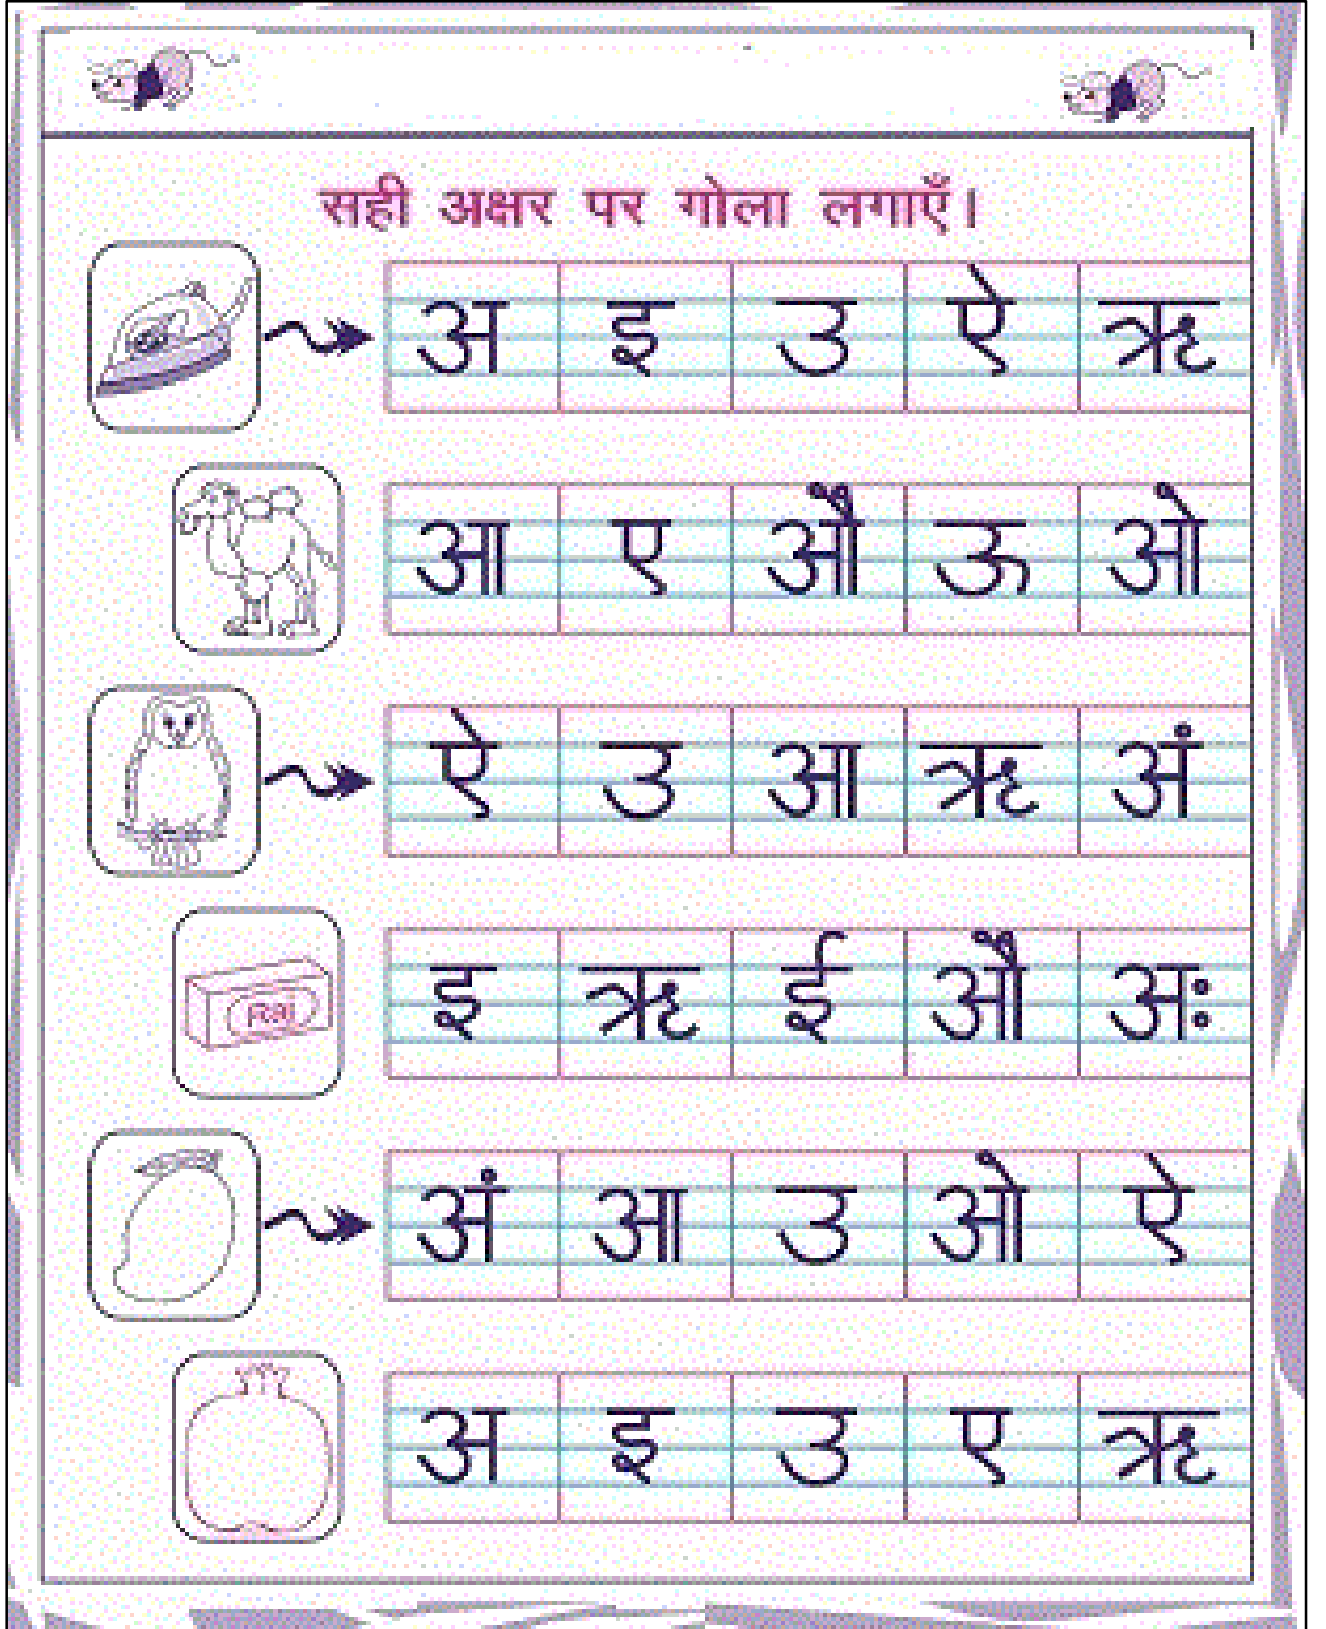 सही अक्षर पर गोला लगाएँ।
अ इ उ ऐ ऋ
आ ए औ ऊ ओ
ऐ उ आ ऋ अं
इ ऋ ई औ अः
अं आ उ ओ ऐ
अ इ उ ए ऋ